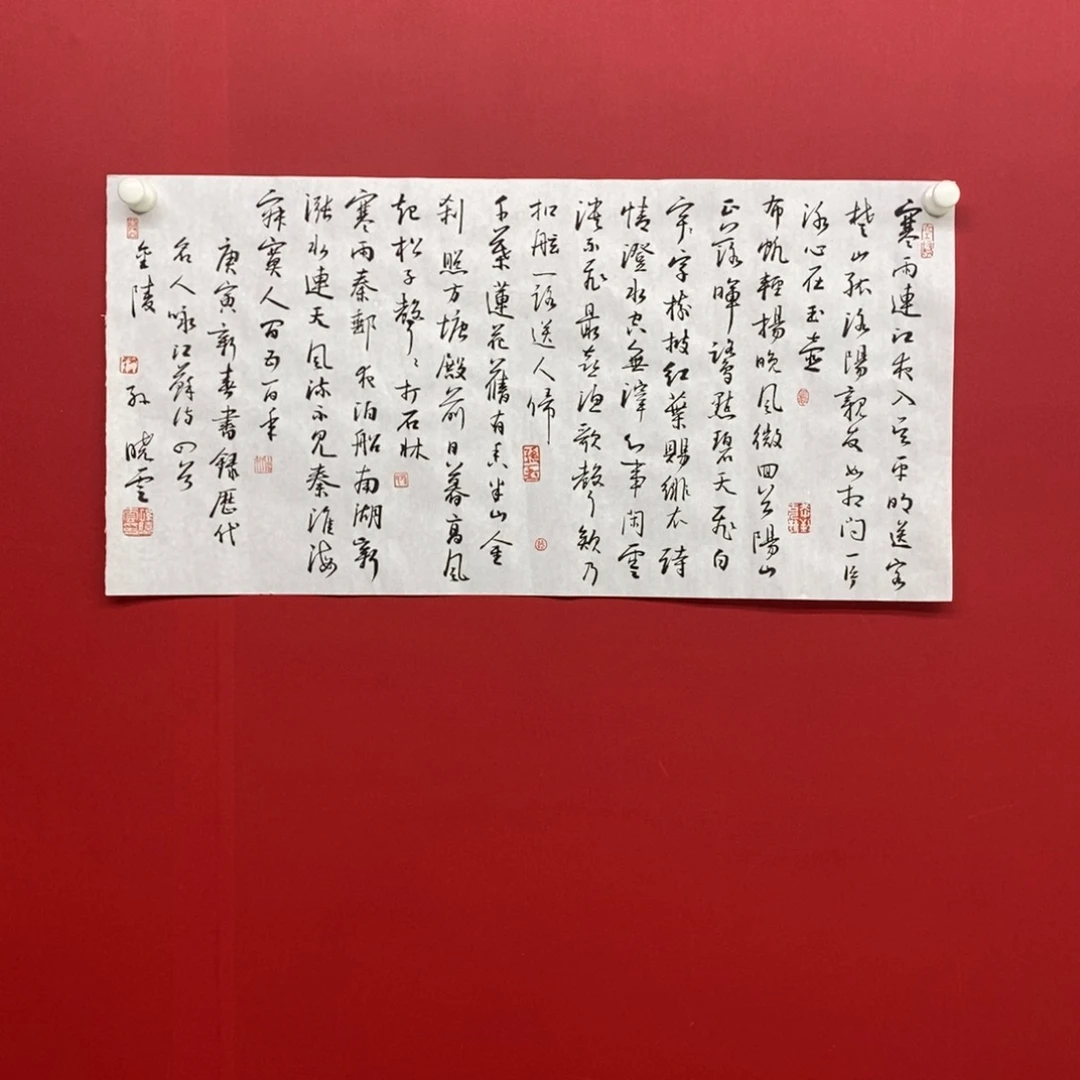 寒雨連江夜入吴平明送客
楚山孤洛陽親友如相问一片
冰心在玉壶
布帆輕揚晚风微回首陽山
正落暉鷺點碧天飛白
字樹披红葉賜緋衣詩
情澄水空無滓心事闲雲
淡不飛最喜渔歌聲欸乃
扣舷一路送人歸
千葉蓮花舊有香半山金
刹照方塘殿前日暮高风
起松子聲聲打石牀
寒雨秦郵夜泊船南湖新
漲水連天风流不见秦淮海
寂寞人间五百年
庚寅新春書録歷代
名人咏江蘇诗四首
金陵 孙晓雲